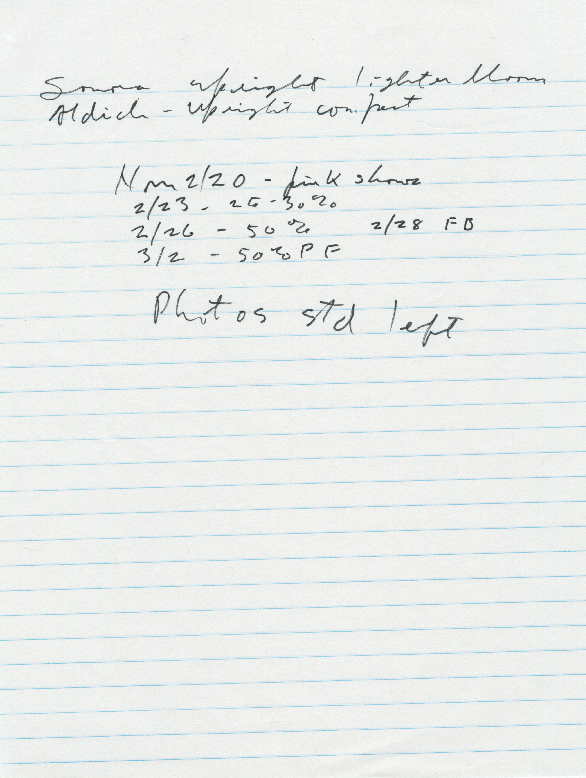 Sonora upright lighter bloom
Aldich - upright compact
Non 2/20 - pink shows
2/23 - 25-30%
2/26 - 50% 2/28 FB
3/2 - 50% PF
Photos std left